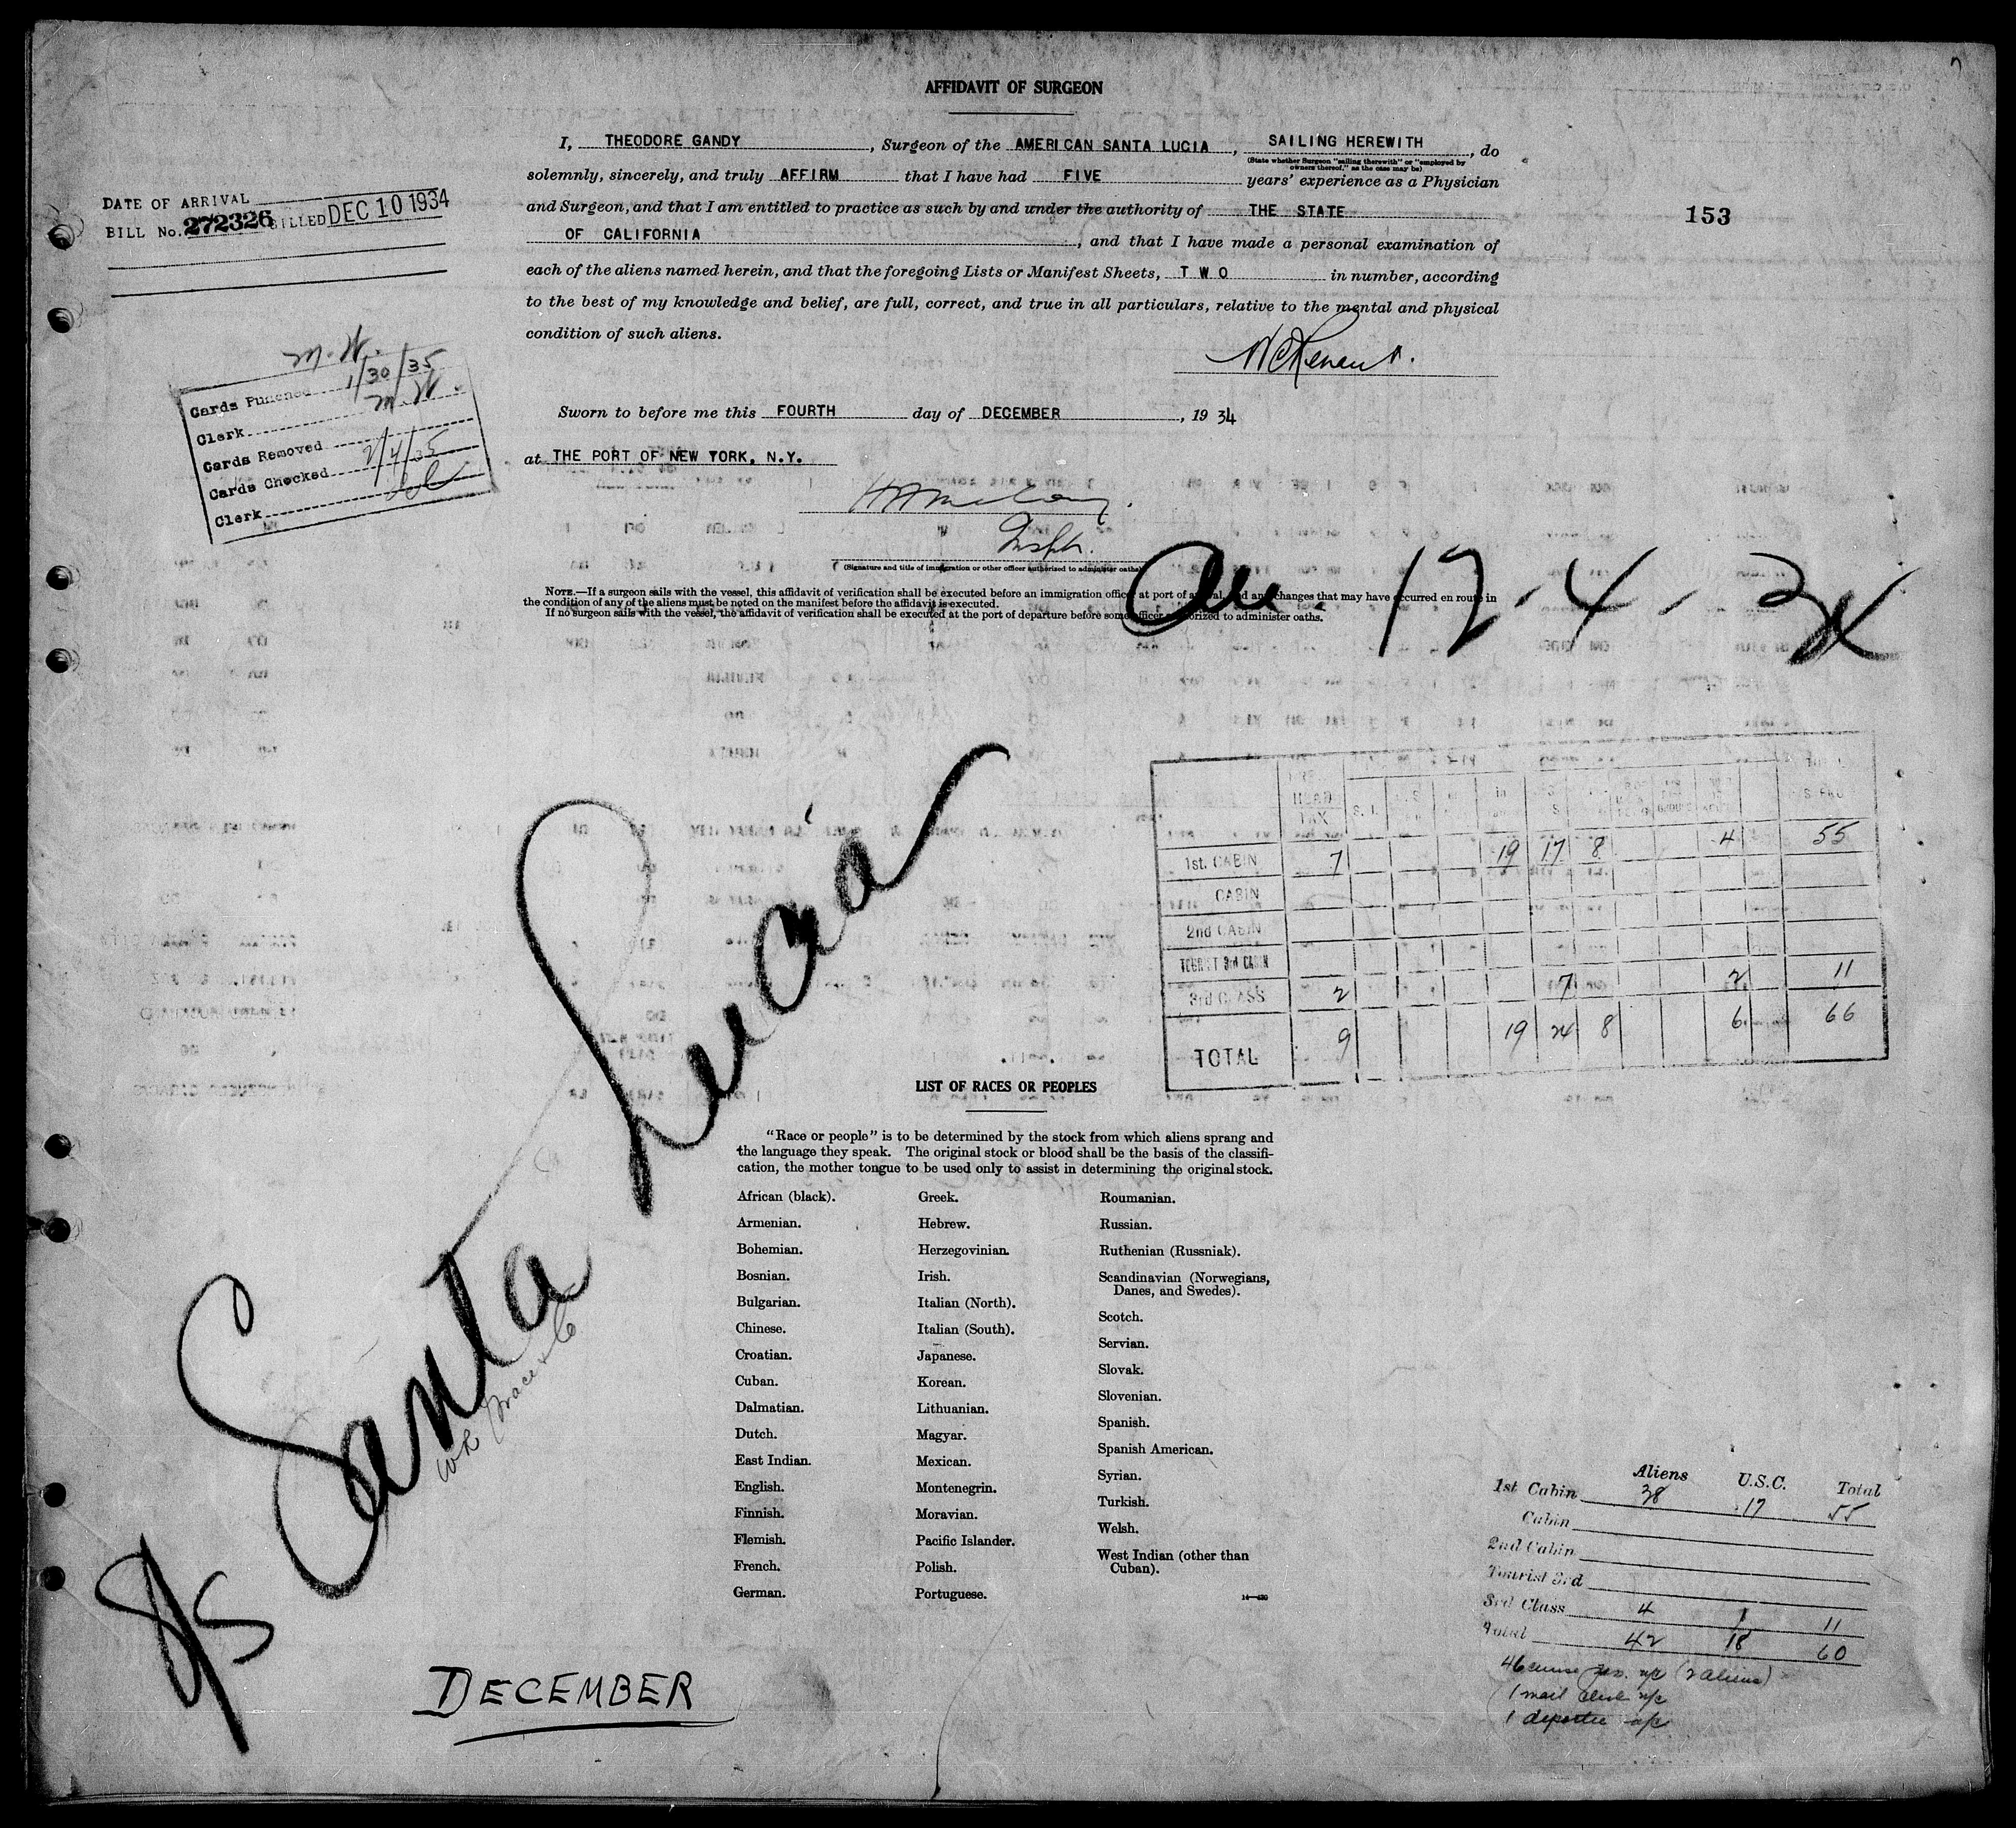 AFFIDAVIT OF SURGEON
I, THEODORE GANDY, Surgeon of the AMERICAN SANTA LUCIA, SAILING HEREWITH, do
(State whether Surgeon "sailing therewith" or "employed by owners thereof," as the case may be)
solemnly, sincerely, and truly AFFIRM that I have had FIVE years' experience as a Physician
and Surgeon, and that I am entitled to practice as such by and under the authority of THE STATE
OF CALIFORNIA, and that I have made a personal examination of
each of the aliens named herein, and that the foregoing Lists or Manifest Sheets, T W O in number, according
to the best of my knowledge and belief, are full, correct, and true in all particulars, relative to the mental and physical
condition of such aliens.
DATE OF ARRIVAL
BILL No. 272326 BILLED DEC 10 1934
153
M.H.
Cards Punched 1/30/35
Clerk M.H.
Cards Removed
Cards Checked 2/4/35
Clerk
Sworn to before me this FOURTH day of DECEMBER, 1934
at THE PORT OF NEW YORK, N.Y.
(Signature and title of immigration or other officer authorized to administer oaths)
NOTE.—If a surgeon sails with the vessel, this affidavit of verification shall be executed before an immigration officer at port of arrival, and any changes that may have occurred en route in
the condition of any of the aliens must be noted on the manifest before the affidavit is executed.
If no surgeon sails with the vessel, the affidavit of verification shall be executed at the port of departure before some officer authorized to administer oaths.
12-4-34
S/S Santa Lucia
WR Grace & Co
HEAD TAX S. I.
1st. CABIN 7 19 17 8 4 55
CABIN
2nd CABIN
TOURIST 3rd CABIN
3rd CLASS 2 7 2 11
TOTAL 9 19 24 8 6 66
LIST OF RACES OR PEOPLES
"Race or people" is to be determined by the stock from which aliens sprang and
the language they speak. The original stock or blood shall be the basis of the classifi-
cation, the mother tongue to be used only to assist in determining the original stock.
African (black).
Armenian.
Bohemian.
Bosnian.
Bulgarian.
Chinese.
Croatian.
Cuban.
Dalmatian.
Dutch.
East Indian.
English.
Finnish.
Flemish.
French.
German.
Greek.
Hebrew.
Herzegovinian.
Irish.
Italian (North).
Italian (South).
Japanese.
Korean.
Lithuanian.
Magyar.
Mexican.
Montenegrin.
Moravian.
Pacific Islander.
Polish.
Portuguese.
Roumanian.
Russian.
Ruthenian (Russniak).
Scandinavian (Norwegians,
Danes, and Swedes).
Scotch.
Servian.
Slovak.
Slovenian.
Spanish.
Spanish American.
Syrian.
Turkish.
Welsh.
West Indian (other than
Cuban).
Aliens U.S.C. Total
1st Cabin 38 17 55
Cabin
2nd Cabin
Tourist 3rd
3rd Class 4 1 11
Total 42 18 60
46 cruise (2 aliens)
1 mail clerk
1 deportee
DECEMBER